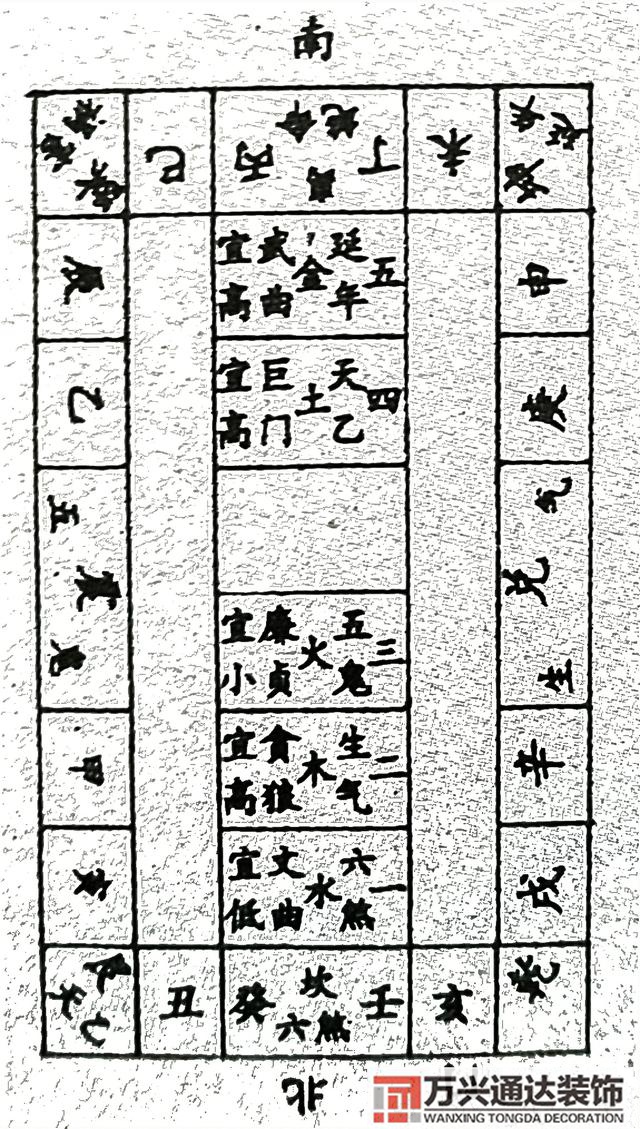 南
祸害
巽
巳
丙
绝命
离
丁
未
坤
延年
辰
五
延年
金
武曲
宜高
申
乙
四
天乙
土
巨门
宜高
庚
震
五鬼
兑
生气
三
五鬼
火
廉贞
宜小
甲
二
生气
木
贪狼
宜高
辛
寅
一
六煞
水
文曲
宜低
戌
艮
天乙
丑
癸
坎
六煞
壬
亥
乾
北
万兴通达装饰
WANXING TONGDA DECORATION